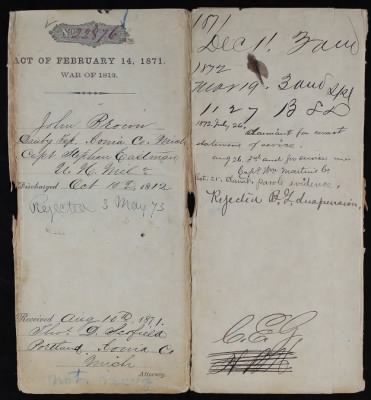 No. 22876
ACT OF FEBRUARY 14, 1871.
WAR OF 1812.
John Brown
Danby, Ionia Co. Mich
Capt Stephen Eastman
N. H. Mil
Discharged Oct 10th, 1812
Rejected 3 May 73
Received Aug 10th, 1871.
Thos D. Scofield
Portland, Ionia Co
Mich
Attorney.
1871
Dec 11. 3 and
1872
Mar 19. 3 and
1127 B
1872 July 26,
claimant for exact
statement of service.
Aug 26. 3d and for service in
Capt Wm Martin's Co
Oct. 21. Claimt. parole evidence.
Rejection suspension.
C.E.G.